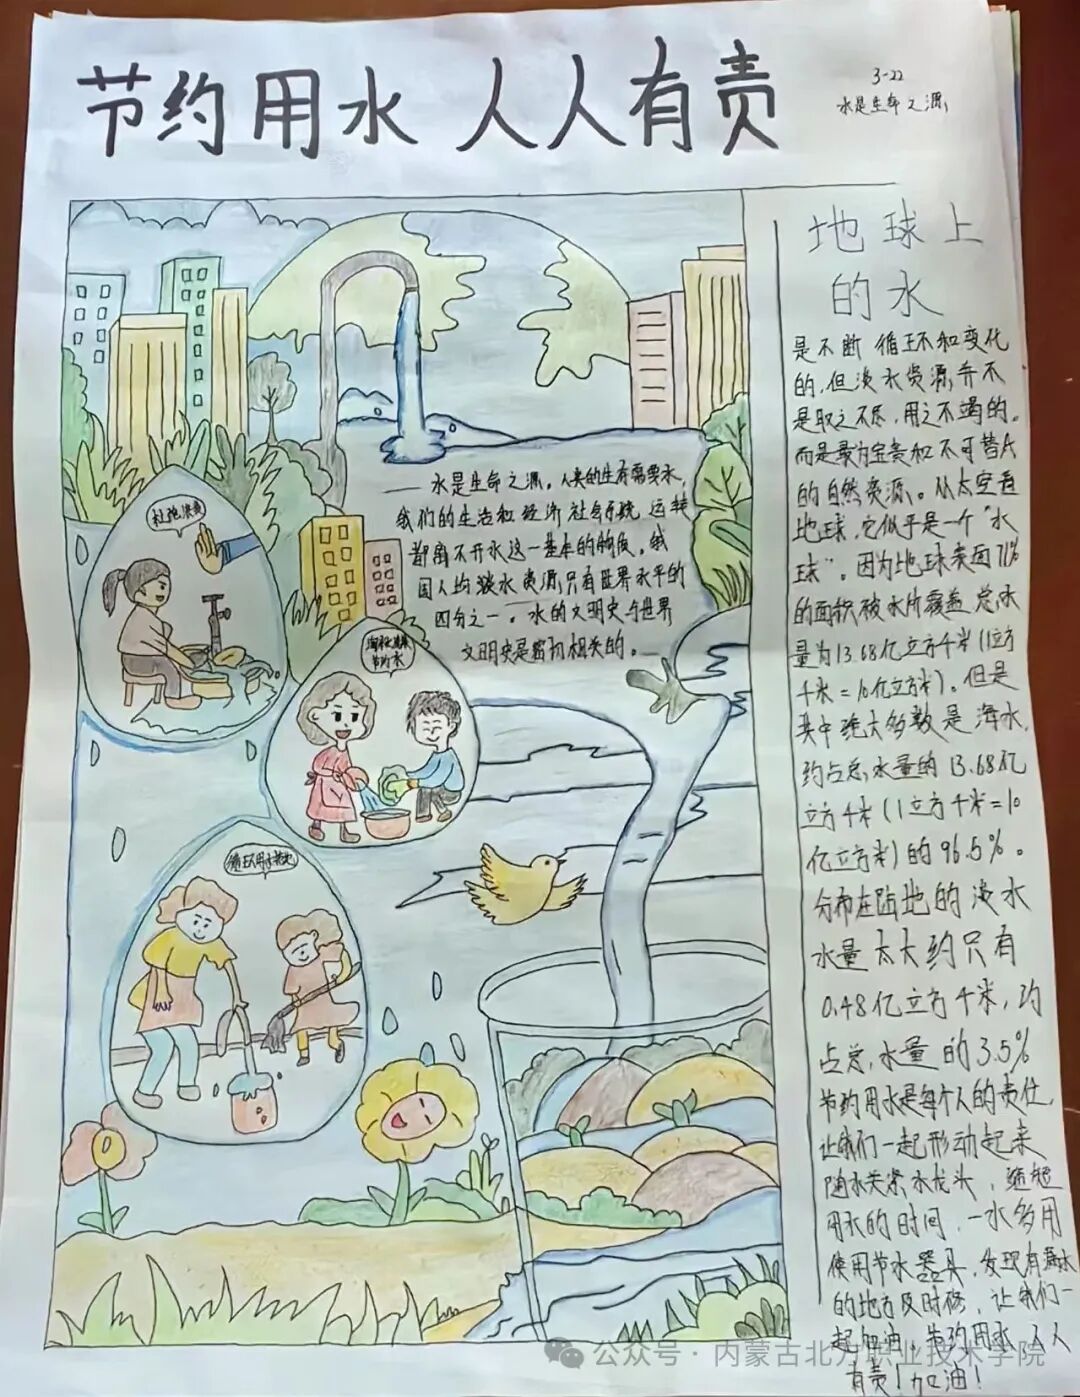 节约用水 人人有责
3-22
水是生命之源
地球上
的水
是不断 循环和变化
的,但淡水资源并不
是取之不尽,用之不竭的。
而是最为宝贵和不可替代
的自然资源。从太空看
地球,它似乎是一个“水
球”。因为地球表面71%
的面积被水所覆盖 总水
量为13.68亿立方千米(1立方
千米=10亿立方米)。但是
其中绝大多数是海水,
约占总水量的13.68亿
立方千米(1立方千米=10
亿立方米)的96.5%。
分布在陆地的淡水
水量太大约只有
0.48亿立方千米,约
占总水量的3.5%
节约用水是每个人的责任,
让我们一起形动起来
随水关紧水龙头,缩短
用水的时间,一水多用
使用节水器具,发现有漏水
的地方及时修,让我们一
起加油,节约用水 人人
有责!加油!
水是生命之源。人类的生存需要水,
我们的生活和经济社会系统 运转
都离不开水这一基本的物质。我
国人均淡水资源只有世界水平的
四分之一。水的文明史与世界
文明史是密切相关的。
杜绝浪费
节约水
循环用水
公众号·内蒙古北方职业技术学院